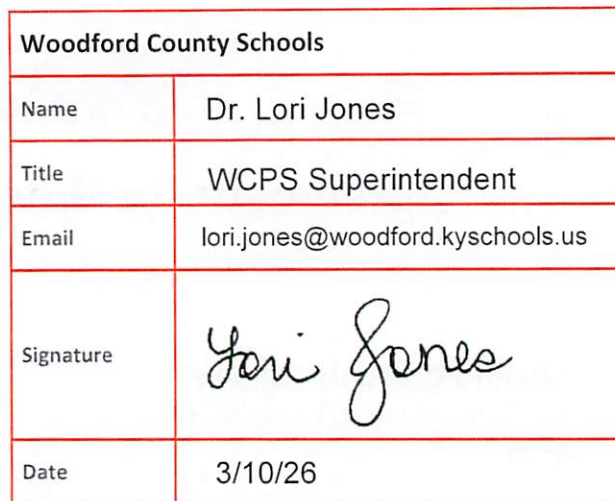 Woodford County Schools
Name Dr. Lori Jones
Title WCPS Superintendent
Email lori.jones@woodford.kyschools.us
Signature Lori Jones
Date 3/10/26